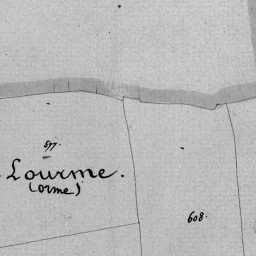 577.
Lourme.
(orme)
608.